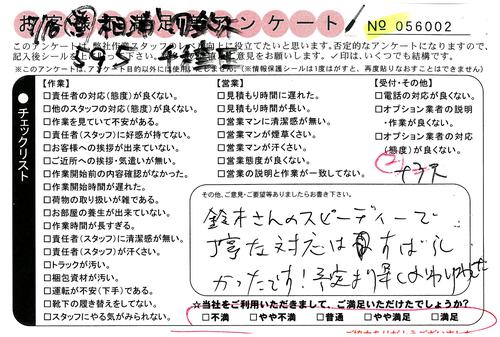 № 056002
このアンケートは、弊社作業スタッフのレベル向上に役立てたいと思います。否定的なアンケートになりますので、
※このアンケートは、アンケート目的以外には使用いたしません。(※情報保護シールは1度はがすと、再度貼りなおすことはできません)
●チェックリスト
【作業】
□責任者の対応(態度)が良くない。
□他のスタッフの対応(態度)が良くない。
□作業を見ていて不安がある。
□責任者(スタッフ)に好感が持てない。
□お客様への挨拶が出来ていない。
□ご近所への挨拶・気遣いが無い。
□作業開始前の内容確認がなかった。
□作業開始時間が遅れた。
□荷物の取り扱いが雑である。
□お部屋の養生が出来ていない。
□作業時間が長すぎる。
□責任者(スタッフ)に清潔感が無い。
□責任者(スタッフ)が汗くさい。
□トラックが汚い。
□梱包資材が汚い。
□運転が不安(下手)である。
□靴下の履き替えをしてない。
□スタッフにやる気がみられない。
【営業】
□見積もり時間に遅れた。
□見積もり時間が長い。
□営業マンに清潔感が無い。
□営業マンが煙草くさい。
□営業マンが汗くさい。
□営業態度が良くない。
□営業の説明と作業が一致してない。
【受付・その他】
□電話の対応が良くない。
□オプション業者の説明
・作業が良くない。
□オプション業者の対応
(態度)が良くない。
その他、ご意見・ご要望等ありましたらお書き下さい。
鈴木さんのスピーディーで
丁寧な対応はすばらし
かったです！予定より早くおわりました
☆当社をご利用いただきまして、ご満足いただけたでしょうか?
□不満 □やや不満 □普通 □やや満足 □満足